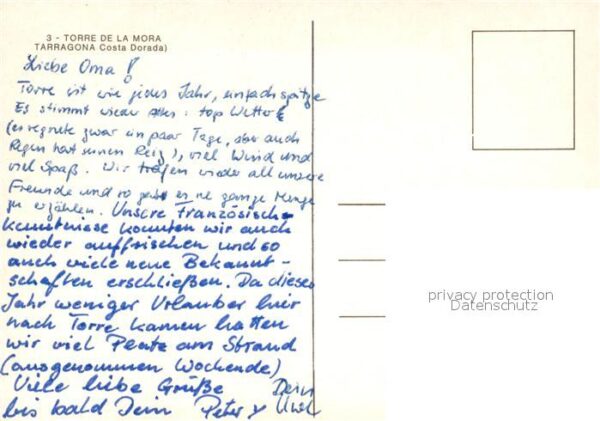 3 - TORRE DE LA MORA
TARRAGONA Costa Dorada)
Liebe Oma!
Torre ist wie jedes Jahr, einfach spitze
Es stimmt wieder alles: top Wetter
(es regnete zwar ein paar Tage, aber auch
Regen hat seinen Reiz), viel Wind und
viel Spaß. Wir treffen wieder all unsere
Freunde und so gibt es ne ganze Menge
zu erzählen. Unsere Französisch-
kenntnisse konnten wir auch
wieder auffrischen und so
auch viele neue Bekannt-
schaften erschließen. Da dieses
Jahr weniger Urlauber hier
nach Torre kamen hatten
wir viel Platz am Strand
(ausgenommen Wochende)
Viele liebe Grüße
bis bald Dein Peter & Dein
Uwe
privacy protection
Datenschutz